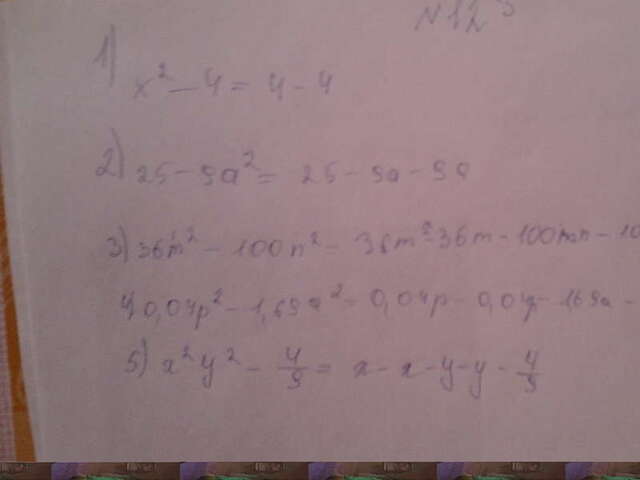 N 12
1)
x² - 4 = 4 - 4
2) 25 - 9a² = 25 - 9a - 9a
3) 36m² - 100n² = 36m² - 36m - 100mn - 10
4) 0,04p² - 1,69q² = 0,04p - 0,04p - 169q -
5) x² y² - 4/9 = x - x - y - y - 4/9